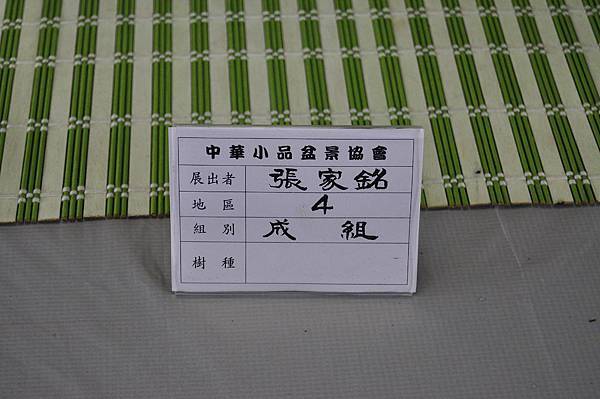 中華小品盆景協會
展出者 張家銘
地區 4
組別 成組
樹種